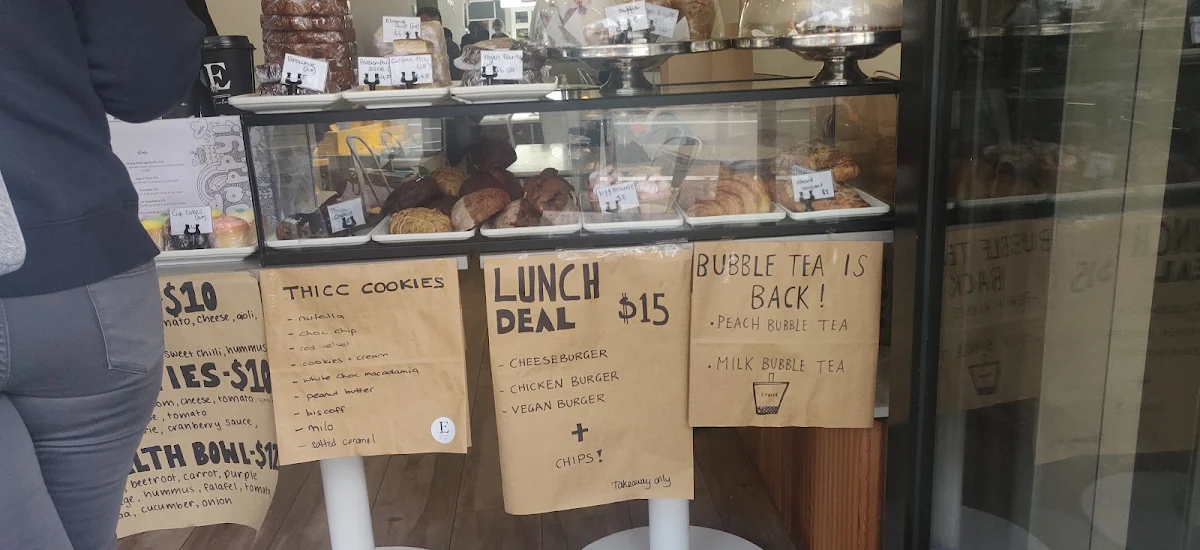 E
Brownie
Vegan
Cup Cakes
Thicc
Cookie
Almond
Croissant
$10
mato, cheese, aioli,
sweet chilli, hummus
IES-$10
om, cheese, tomato,
ie, tomato
ie, cranberry sauce,
LTH BOWL-$12
beetroot, carrot, purple
ge, hummus, falafel, tomato
oa, cucumber, onion
THICC COOKIES
- nutella
- choc chip
- red velvet
- cookies + cream
- white choc macadamia
- peanut butter
- biscoff
- milo
- salted caramel
E
LUNCH
DEAL $15
- CHEESEBURGER
- CHICKEN BURGER
- VEGAN BURGER
+
CHIPS!
Takeaway only
BUBBLE TEA IS
BACK!
• PEACH BUBBLE TEA
• MILK BUBBLE TEA